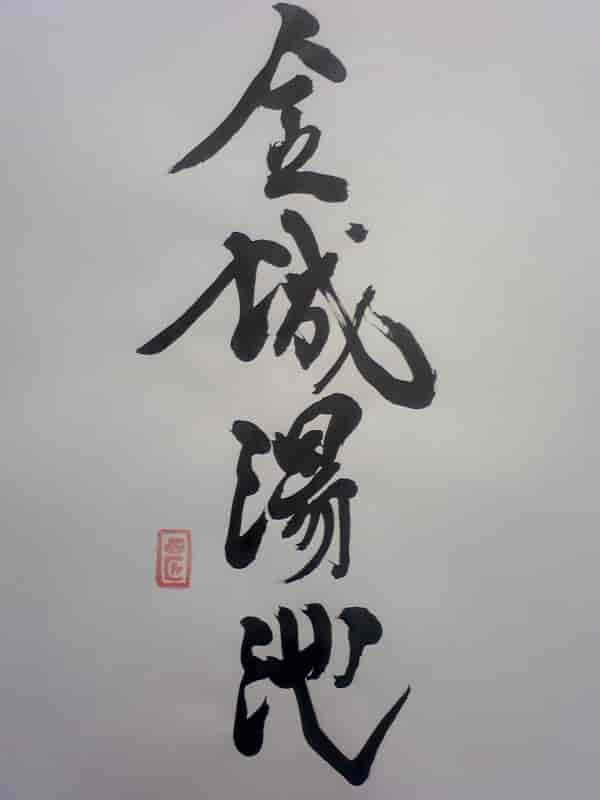 金城湯池